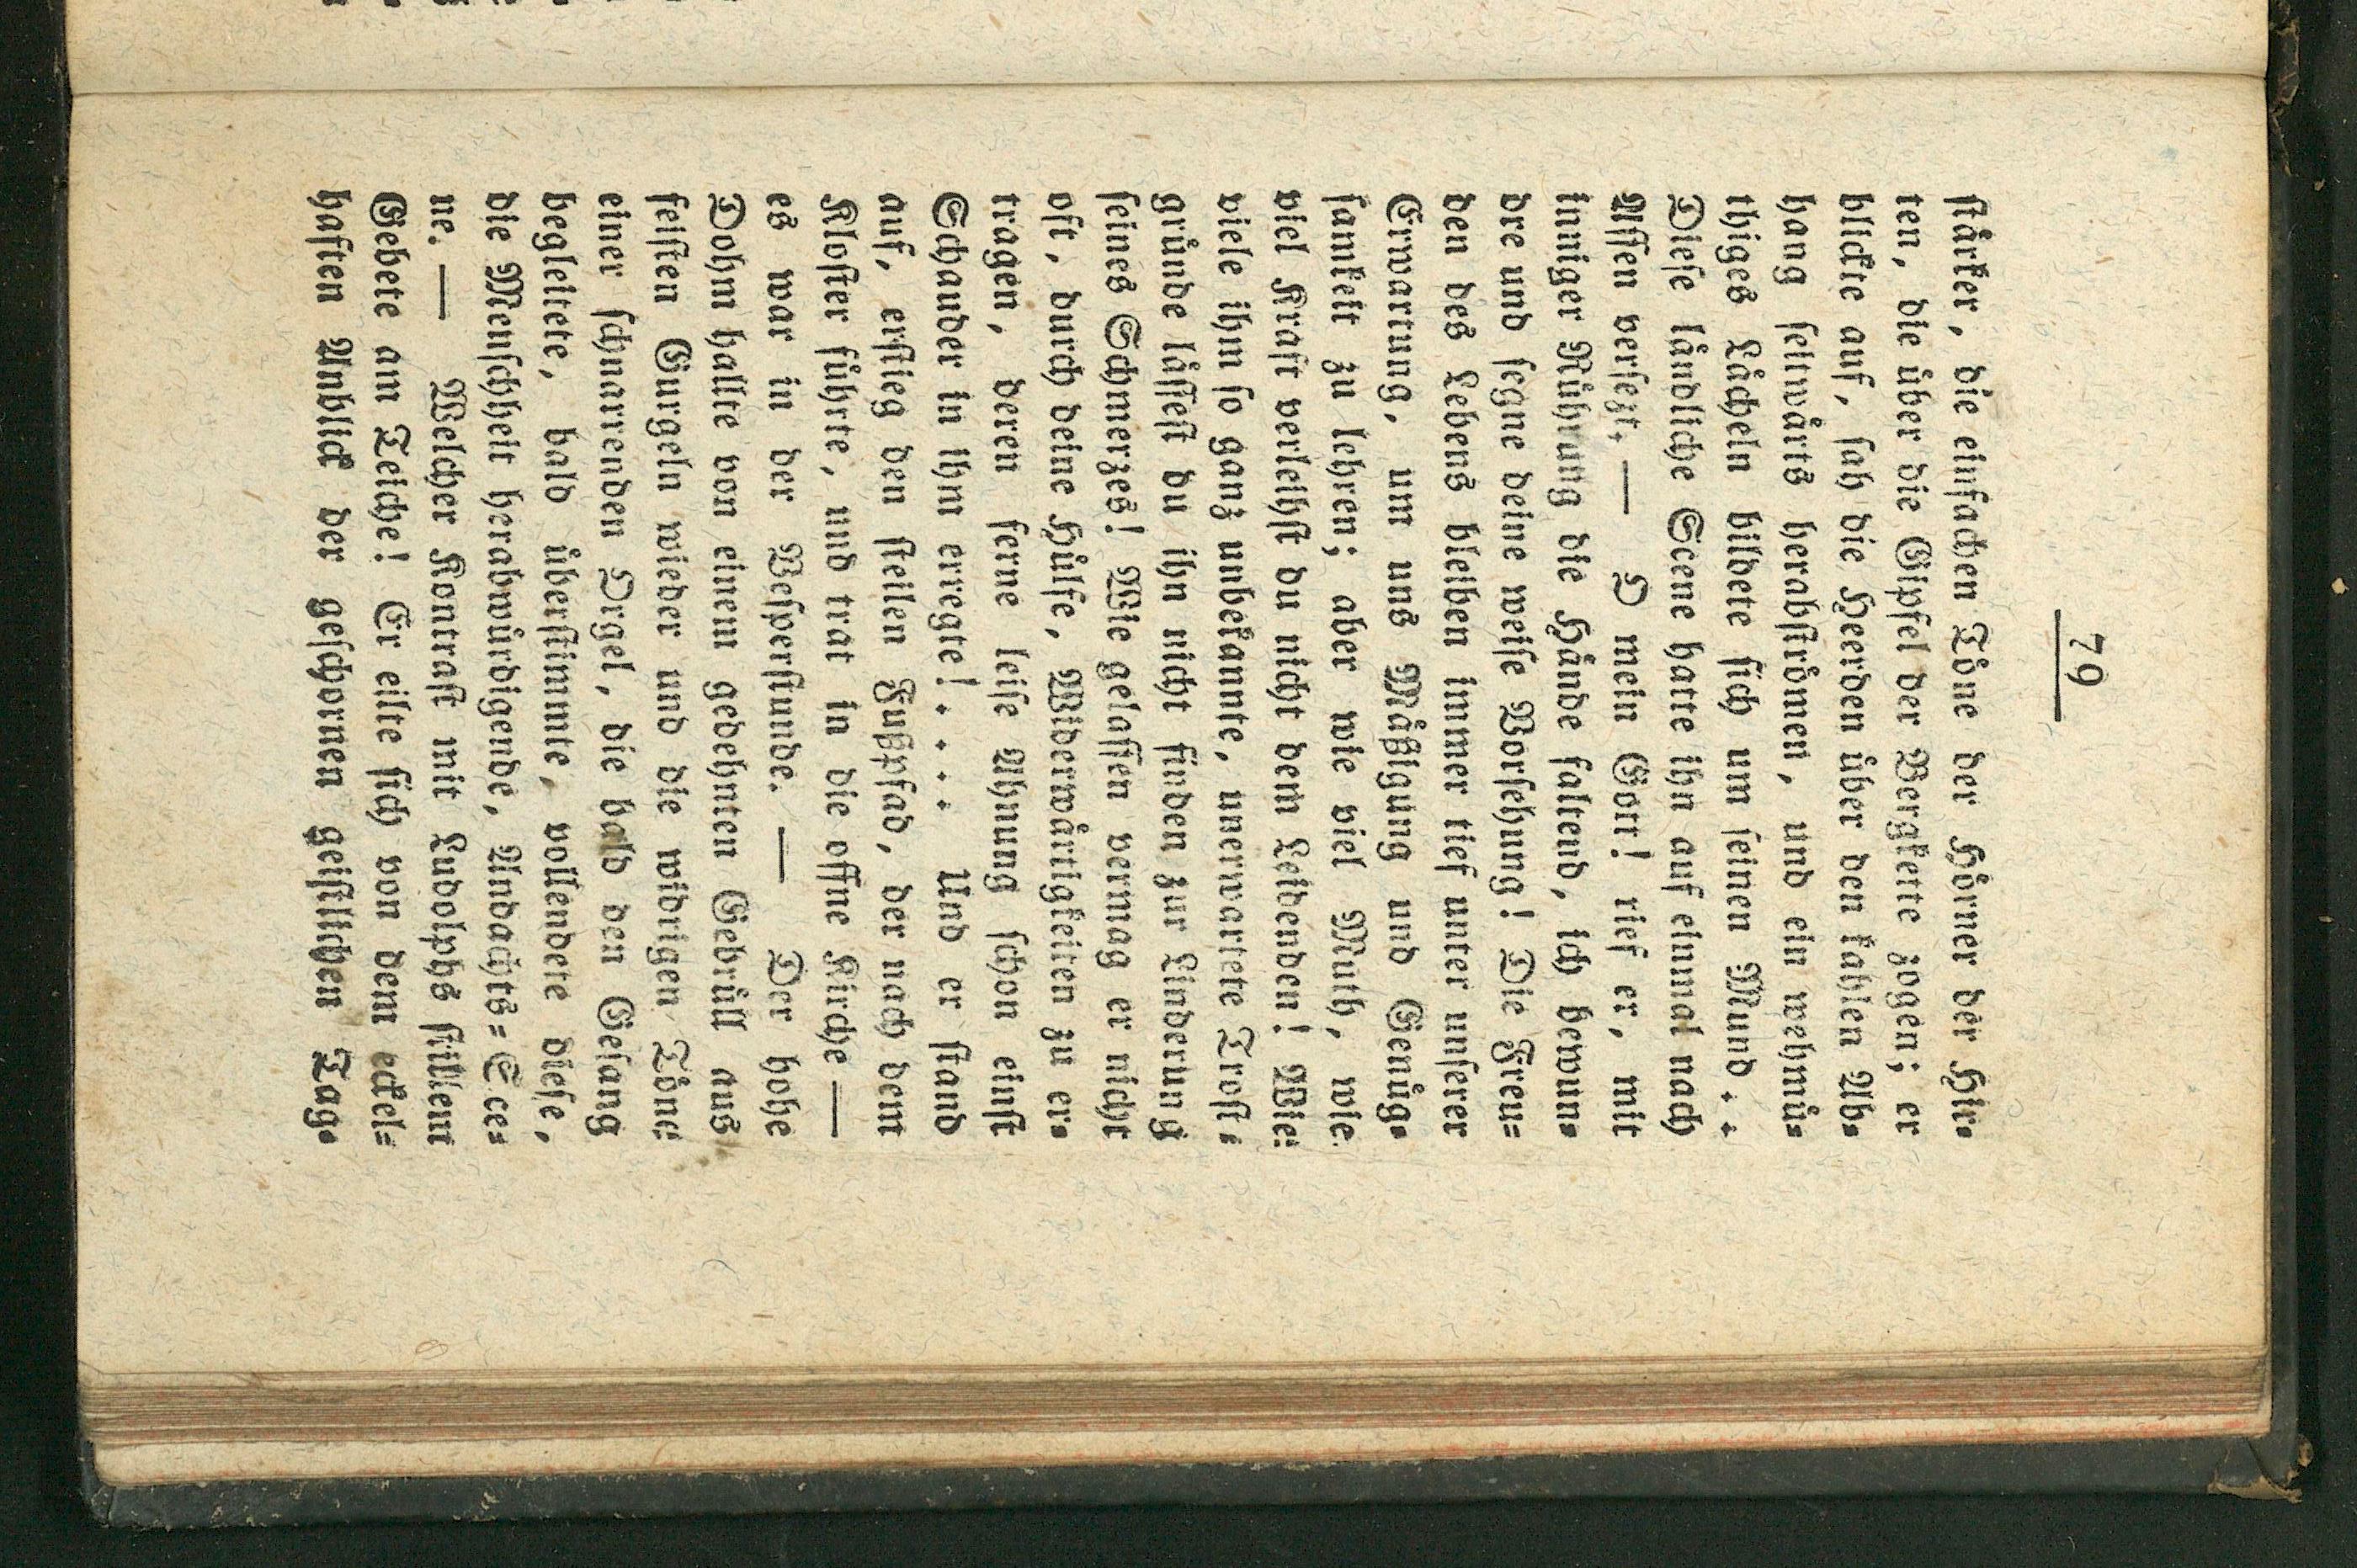 79
ſtärker, die einfachen Töne der Hörner der Hir-
ten, die über die Gipfel der Bergkette zogen; er
blickte auf, ſah die Heerden über den kahlen Ab-
hang ſeitwärts herabſtrömen, und ein wehmü-
thiges Lächeln bildete ſich um ſeinen Mund . .
Dieſe ländliche Scene hatte ihn auf einmal nach
Aſſen verſezt. — O mein Gott! rief er, mit
inniger Rührung die Hände faltend, ich bewun-
dre und ſegne deine weiſe Vorſehung! Die Freu-
den des Lebens bleiben immer tief unter unſerer
Erwartung, um uns Mäßigung und Genüg-
ſamkeit zu lehren; aber wie viel Muth, wie
viel Kraft verleihſt du nicht dem Leidenden! Wie
viele ihm ſo ganz unbekannte, unerwartete Troſt-
gründe läſſeſt du ihn nicht finden zur Linderung
ſeines Schmerzes! Wie gelaſſen vermag er nicht
oft, durch deine Hülfe, Widerwärtigkeiten zu er-
tragen, deren ferne leiſe Ahnung ſchon einſt
Schauder in ihm erregte! . . . . Und er ſtand
auf, erſtieg den ſteilen Fußpfad, der nach dem
Kloſter führte, und trat in die offne Kirche —
es war in der Veſperſtunde. — Der hohe
Dohm hallte von einem gedehnten Gebrüll aus
feiſten Gurgeln wieder und die widrigen Töne
einer ſchnarrenden Orgel, die bald den Geſang
begleitete, bald überſtimmte, vollendete dieſe,
die Menſchheit herabwürdigende, Andachts-Sce-
ne. — Welcher Kontraſt mit Ludolphs ſtillem
Gebete am Teiche! Er eilte ſich von dem eckel-
haften Anblick der geſchornen geiſtlichen Tag-